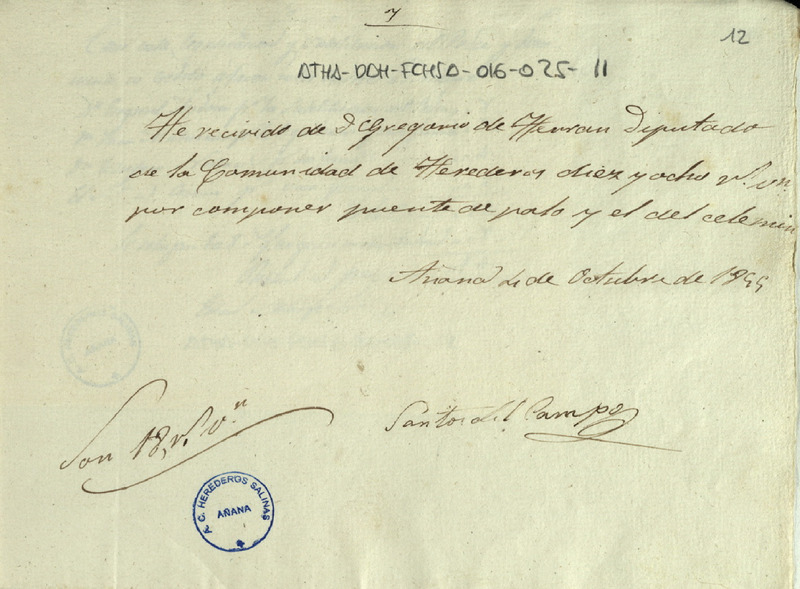 7
12
ATHA-DAH-FCHSA-016-025-11
He recivido de D Gregorio de Herran Diputado
de la Comunidad de Herederos diez y ocho r.s v.n
por componer puente de palo y el del celemin
Añana 4 de Octubre de 1855
Son 18, r.s v.n
Santos del Campo
A. C. HEREDEROS SALINAS
AÑANA